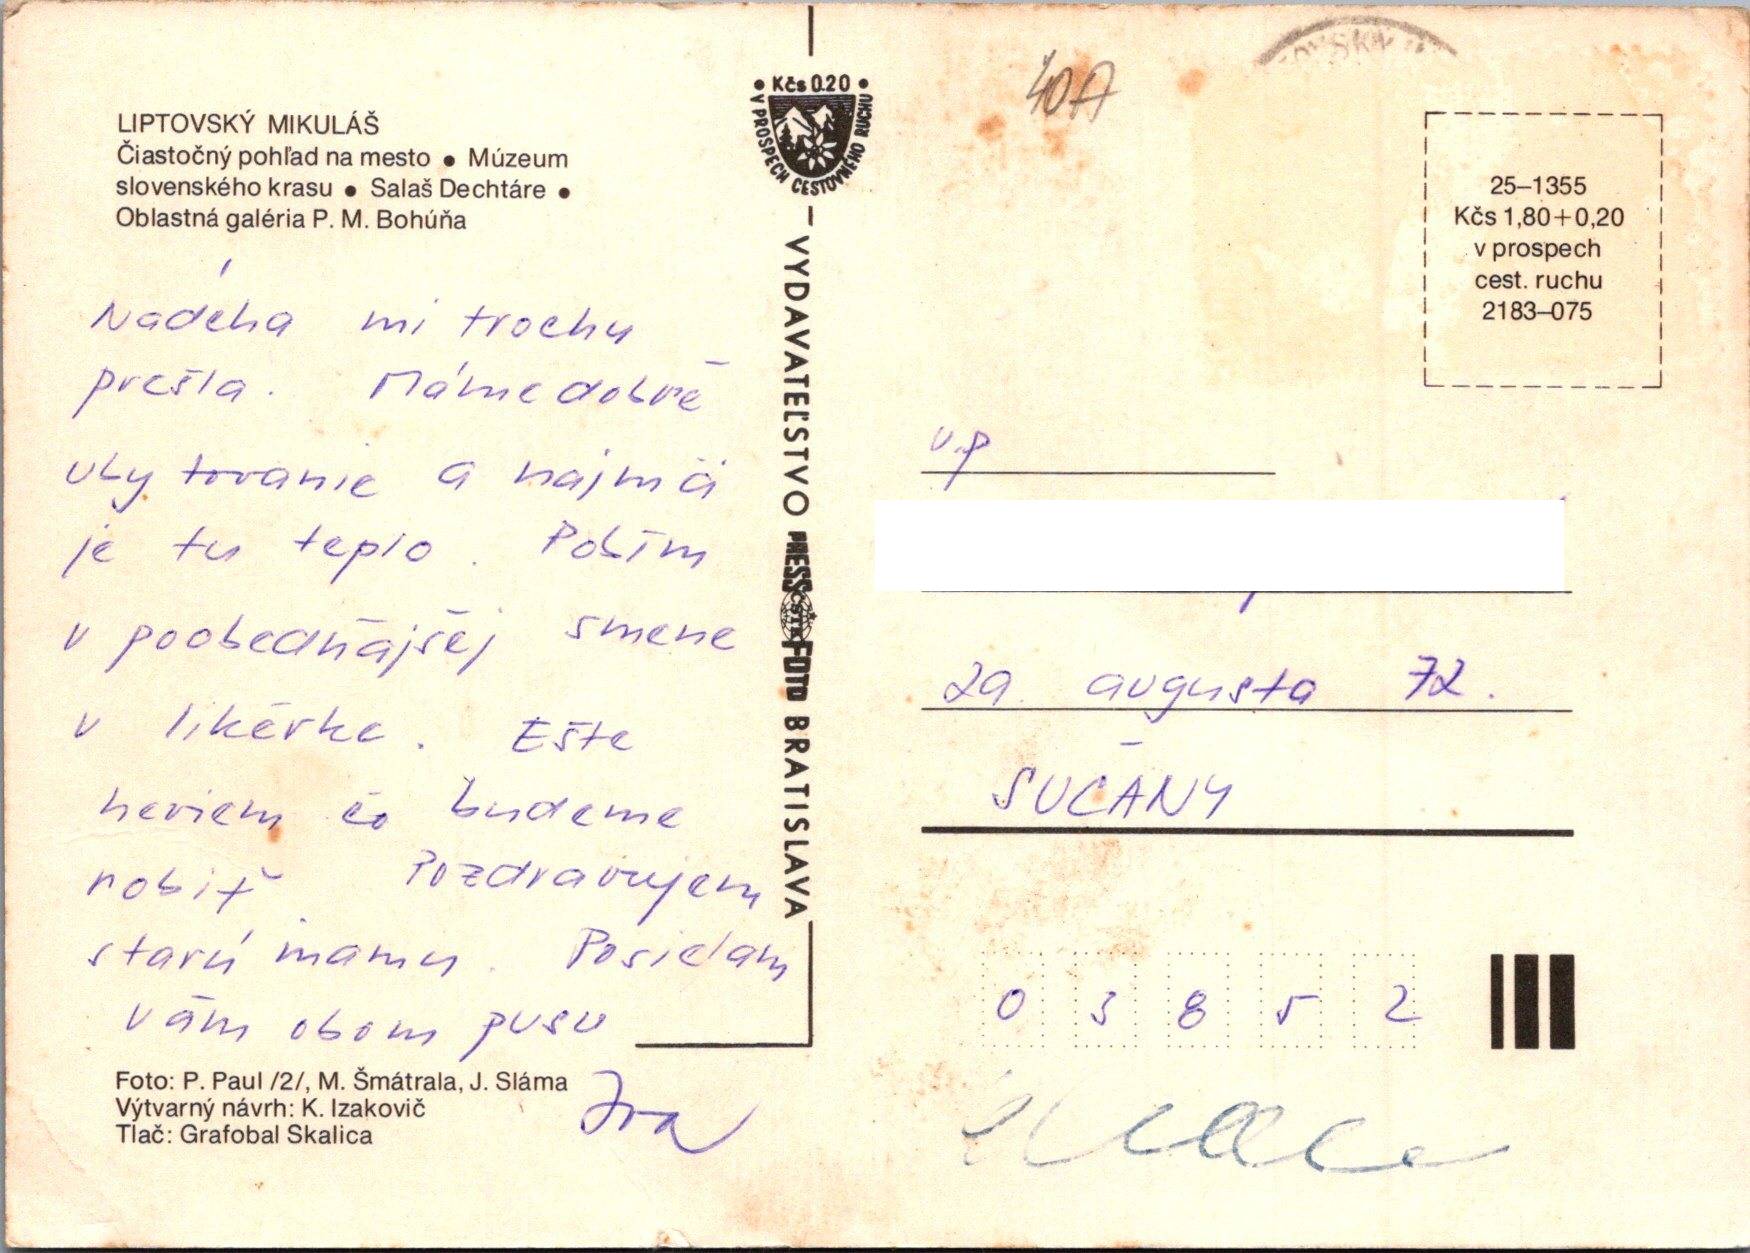 LIPTOVSKÝ MIKULÁŠ
Čiastočný pohľad na mesto ● Múzeum
slovenského krasu ● Salaš Dechtáre ●
Oblastná galéria P. M. Bohúňa
Nádcha mi trochu
prešla. Máme dobré
ubytovanie a najmä
je tu teplo. Robím
v poobedňajšej smene
v likérke. Ešte
neviem čo budeme
robiť Pozdravujem
starú mamu. Posielam
vám obom pusu
Iva
Foto: P. Paul /2/, M. Šmátrala, J. Sláma
Výtvarný návrh: K. Izakovič
Tlač: Grafobal Skalica
● Kčs 0.20 ●
V PROSPECH CESTOVNÉHO RUCHU
VYDAVATEĽSTVO PRESSFOTO BRATISLAVA
ČSTK
40A
25–1355
Kčs 1,80+0,20
v prospech
cest. ruchu
2183–075
v.p
29. augusta 72.
SUČANY
03852